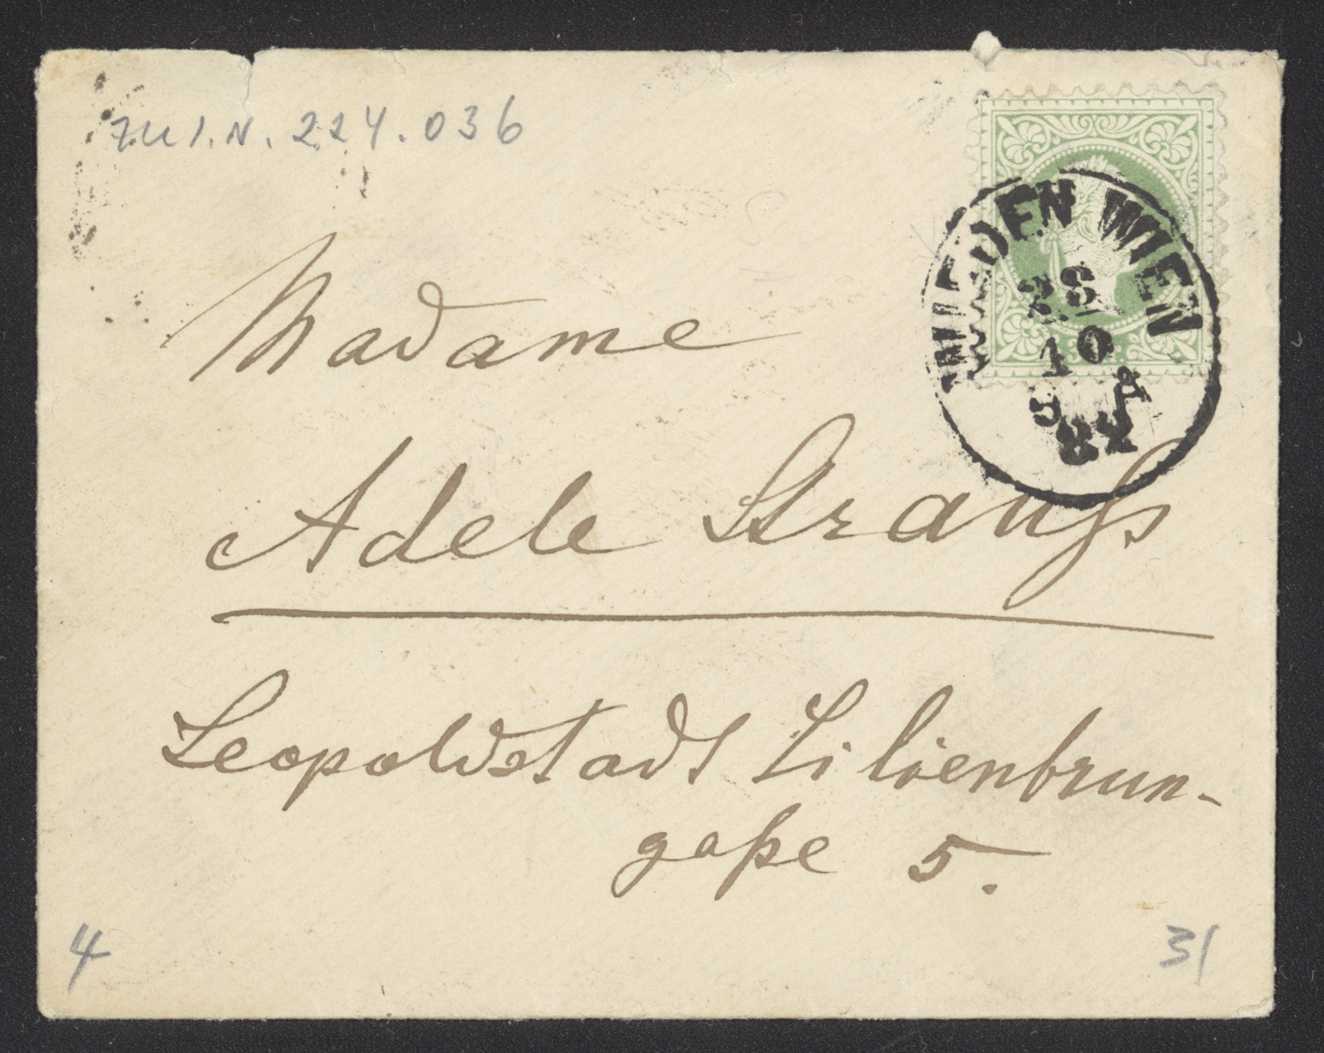 ZU I.N. 224.036
WIEDEN WIEN
28
10
82
Madame
Adele Strauß
Leopoldstadt Lilienbrun-
gaße 5.
4
31